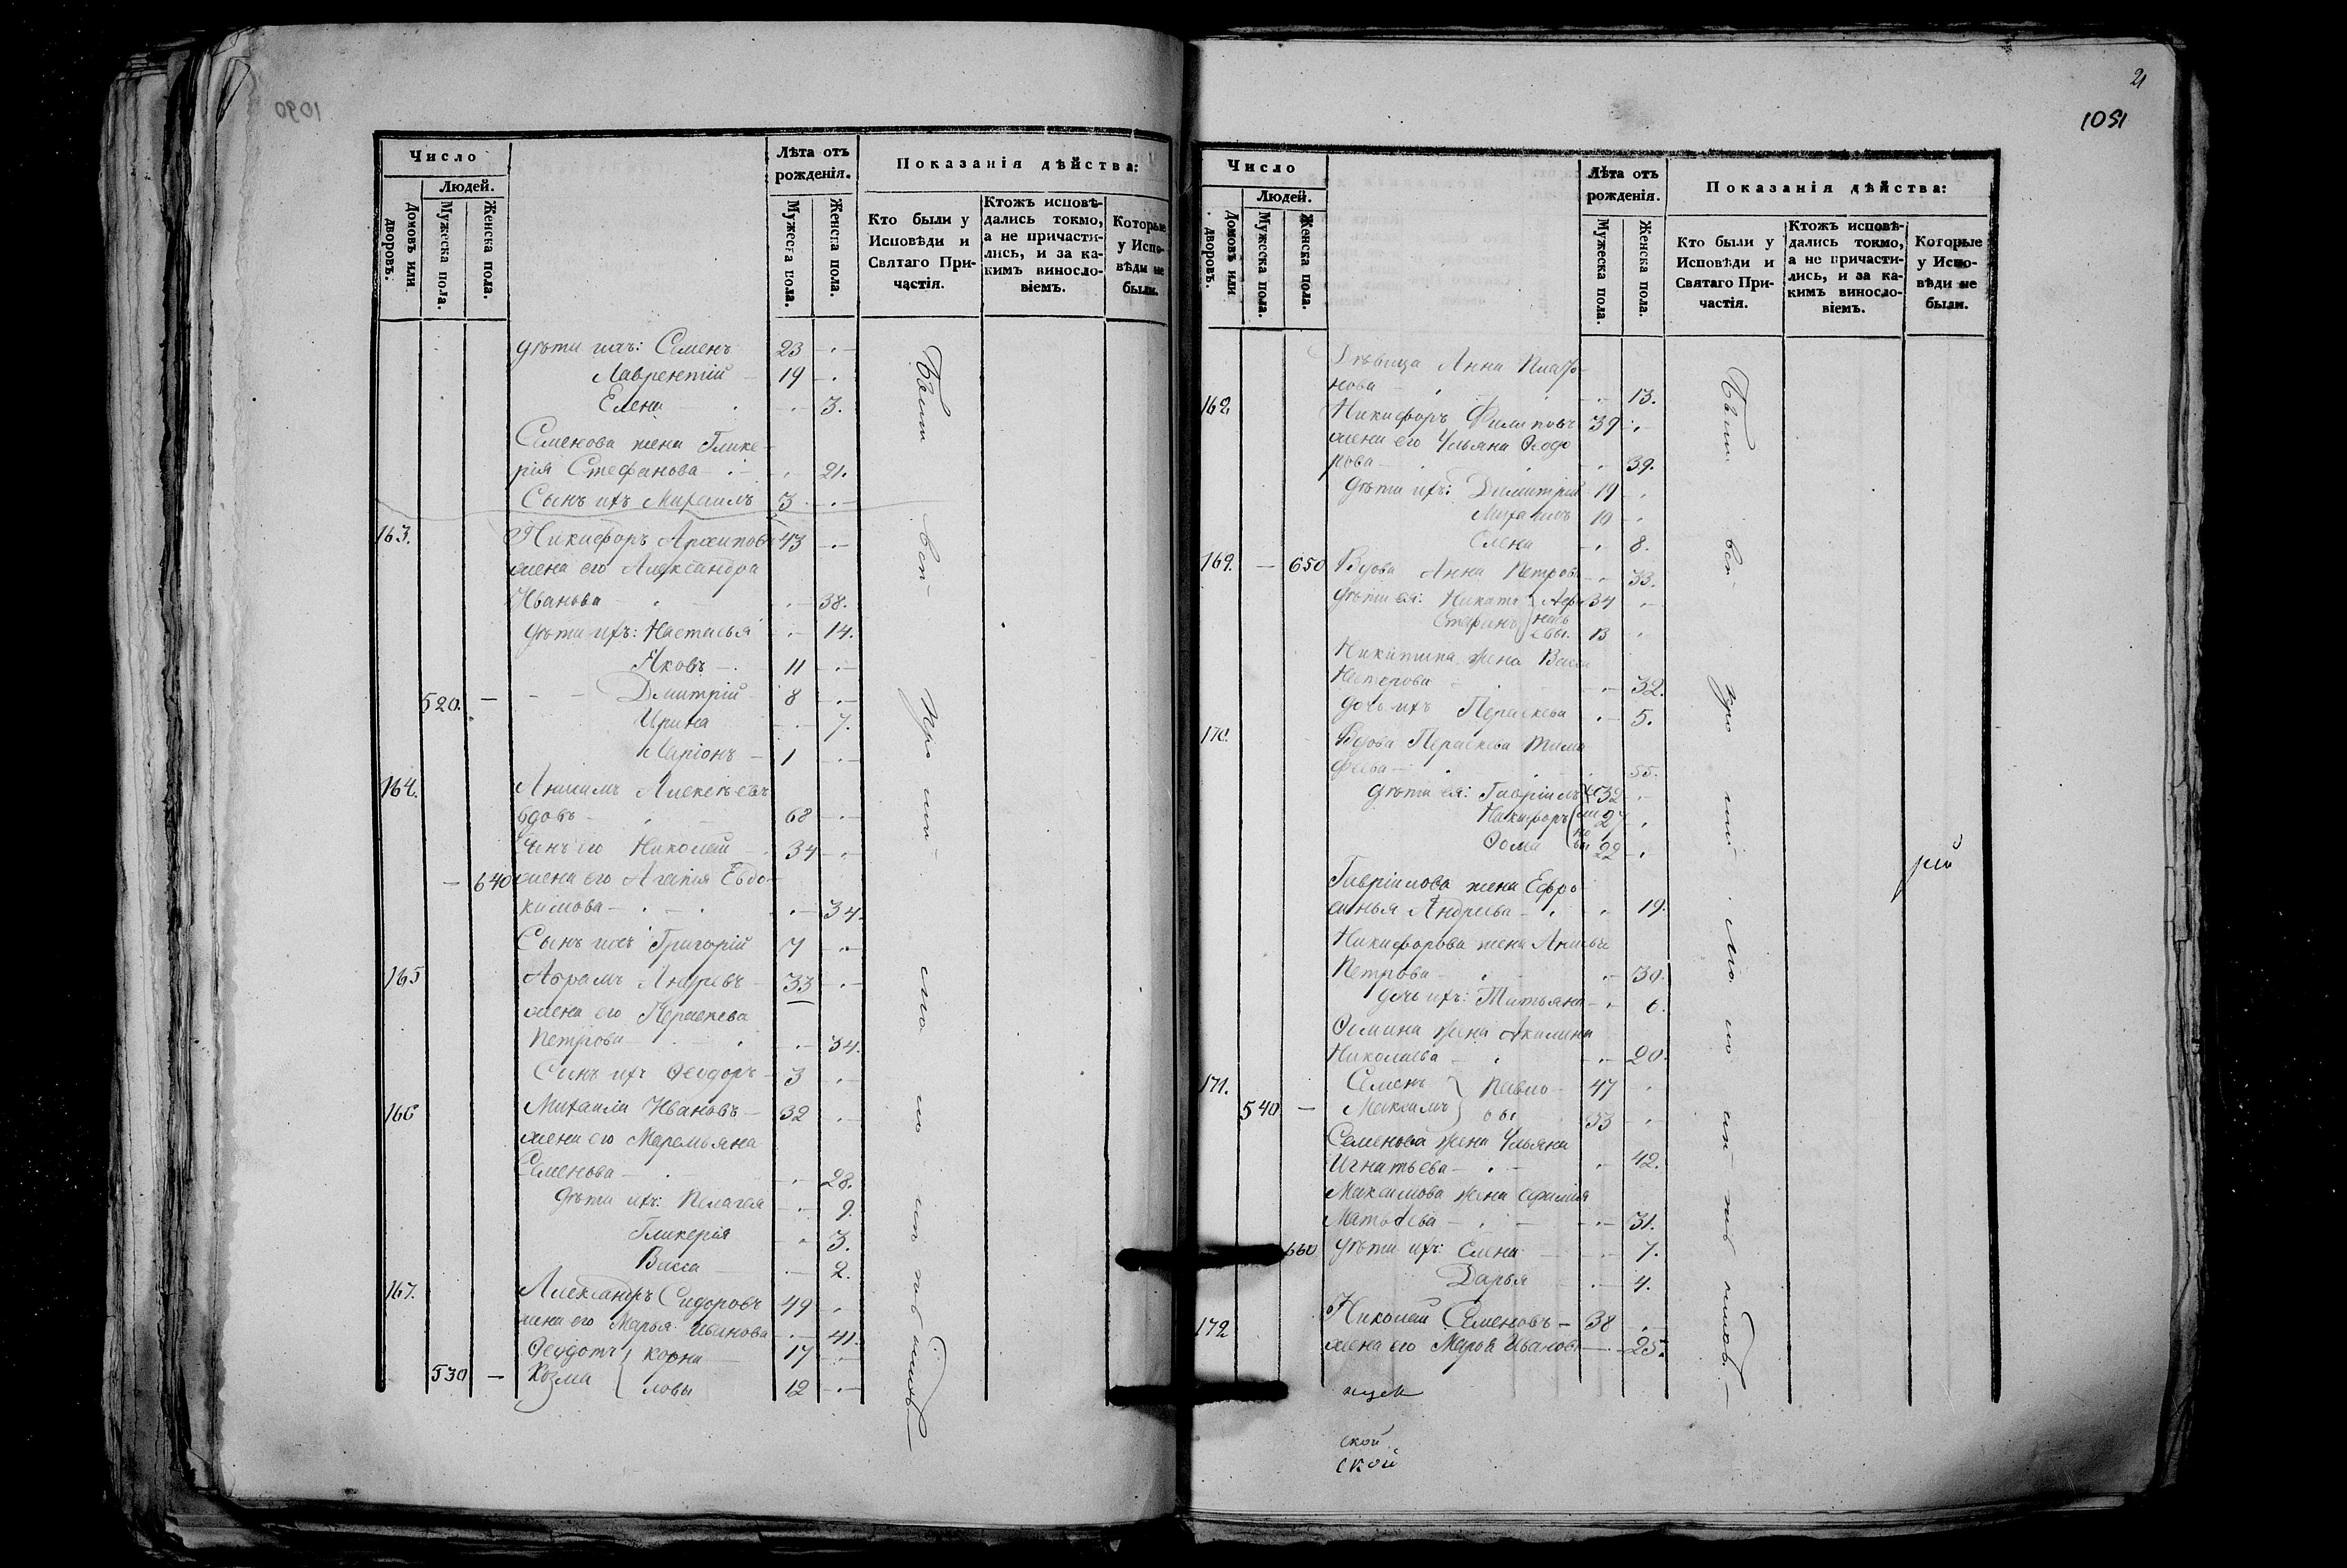 1090
Число
Людей.
Домовъ или дворовъ.
Мужеска пола.
Женска пола.
Лѣта отъ рожденія.
Мужеска пола.
Женска пола.
Показанія дѣйства:
Кто были у Исповѣди и Святаго Причастія.
Ктожъ исповѣдались токмо, а не причастились, и за какимъ винословіемъ.
Которые у Исповѣди не были.
дѣти ихъ: Семенъ 23
Лаврентій 19
Елена 3.
Семенова жена Глике
рія Стефанова 21.
Сынъ ихъ Михаилъ 3
163. Никифоръ Архиповъ 43
жена его Александра
Иванова 38.
дѣти ихъ: Настасья 14.
Яковъ 11
520. Дмитрій 8
Ирина 7.
Ларіонъ 1
164. Алексѣевъ
вдовъ 68
сынъ его Николай 34
640 жена его Агапія Евдо
кимова 34.
Сынъ ихъ Григорій 7
165 Абрамъ Андревъ 33
жена его Пераскева
Петрова 34.
Сынъ ихъ Ѳеодоръ 3
166 Михаила Ивановъ 32
жена его Маремьяна
Семенова 28.
дѣти ихъ: Пелагея 9.
Гликерія 3.
Васса 2.
167. Александръ Сидоровъ 49
жена его Марья Иванова 41.
Ѳеодотъ корни 17
530 Козма ловы 12
Были
21
1091
Число
Людей.
Домовъ или дворовъ.
Мужеска пола.
Женска пола.
Лѣта отъ рожденія.
Мужеска пола.
Женска пола.
Показанія дѣйства:
Кто были у Исповѣди и Святаго Причастія.
Ктожъ исповѣдались токмо, а не причастились, и за какимъ винословіемъ.
Которые у Исповѣди не были.
Дѣвица Анна Плато
нова 13.
162 Никифоръ Филиповъ 39
жена его Ульяна Ѳеодо
рова 39.
дѣти ихъ: Димитрій 19
Михаилъ 10
Елена 8.
169. 650 Вдова Анна Петрова 53.
дѣти ея: Никита 34
Стефанъ 13
Никитина жена Васса
Несторова 32.
дочь ихъ Пераскева 5.
170. Вдова Пераскева Тимо
фѣева 55.
дѣти ея: Гавріилъ 32
Никифоръ 27
Ѳома 22
Гавріилова жена Ефро
синья Андреева 19.
Никифорова жена
Петрова 30.
дочь ихъ: Татьяна 6.
Ѳомина жена Акилина
Николаева 20.
171. Семенъ Павло 47
540 Максимъ вы 33
Семенова жена Ульяна
Игнатьева 42.
Максимова жена
Матвѣева 31.
660 дѣти ихъ: Елена 7.
Дарья 4.
172 Николай Семеновъ 38
жена его Марья Иванова 25.
Были
ской
ской